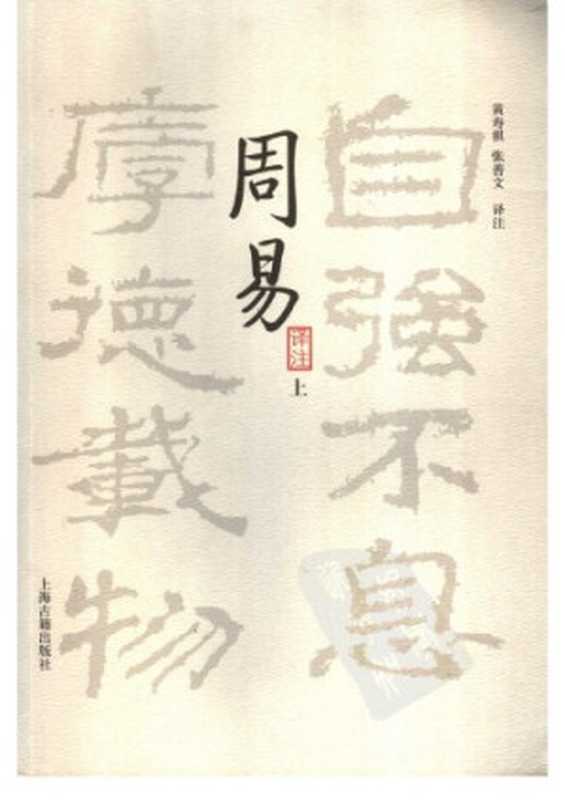 自强不息
厚德载物
周易
译注
上
黄寿祺 张善文 译注
上海古籍出版社